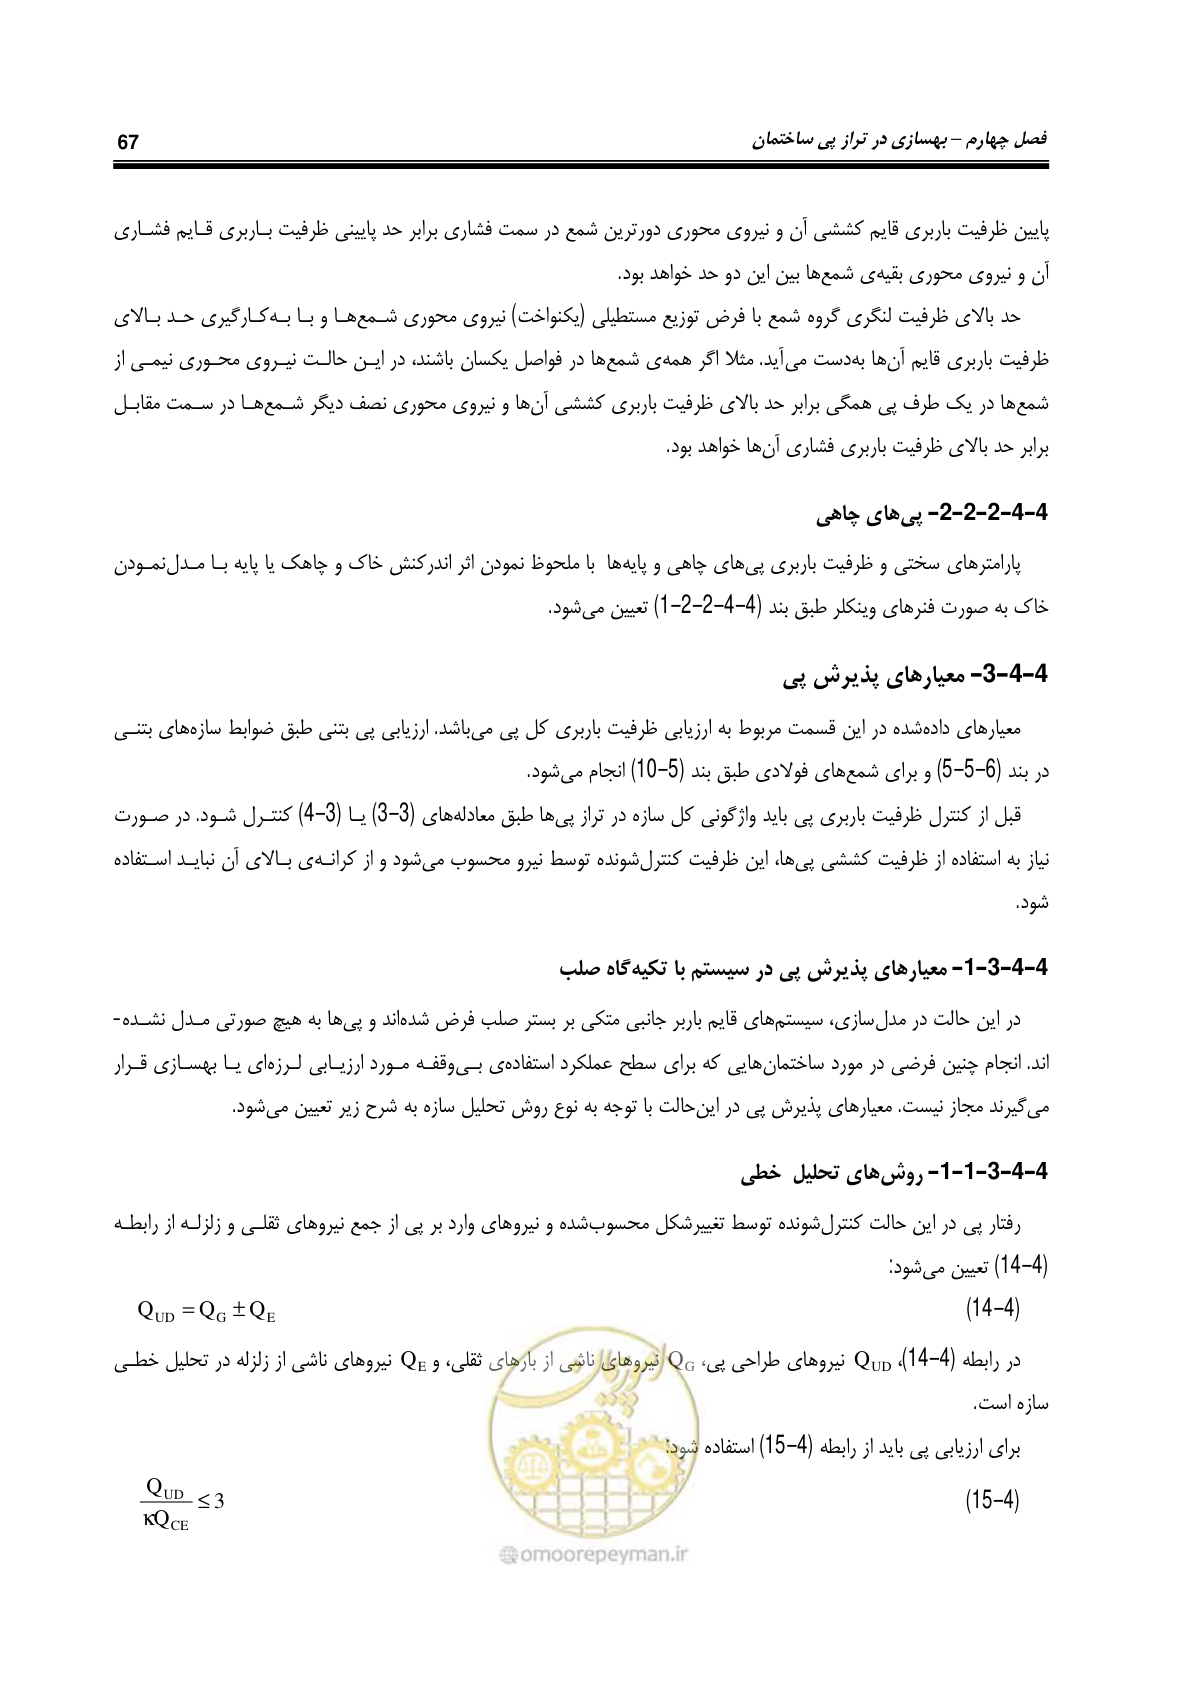 فصل چهارم – بهسازی در تراز پی ساختمان 67
پایین ظرفیت باربری قایم کششی آن و نیروی محوری دورترین شمع در سمت فشاری برابر حد پایینی ظرفیت بـاربری قـایم فشـاری
آن و نیروی محوری بقیه‌ی شمع‌ها بین این دو حد خواهد بود.
حد بالای ظرفیت لنگری گروه شمع با فرض توزیع مستطیلی (یکنواخت) نیروی محوری شـمع‌هـا و بـا بـه‌کـارگیری حـد بـالای
ظرفیت باربری قایم آن‌ها به‌دست می‌آید. مثلا اگر همه‌ی شمع‌ها در فواصل یکسان باشند، در ایـن حالـت نیـروی محـوری نیمـی از
شمع‌ها در یک طرف پی همگی برابر حد بالای ظرفیت باربری کششی آن‌ها و نیروی محوری نصف دیگر شـمع‌هـا در سـمت مقابـل
برابر حد بالای ظرفیت باربری فشاری آن‌ها خواهد بود.
4-4-2-2-2- پی‌های چاهی
پارامترهای سختی و ظرفیت باربری پی‌های چاهی و پایه‌ها با ملحوظ نمودن اثر اندرکنش خاک و چاهک یا پایه بـا مـدل‌نمـودن
خاک به صورت فنرهای وینکلر طبق بند (4-4-2-2-1) تعیین می‌شود.
4-4-3- معیارهای پذیرش پی
معیارهای داده‌شده در این قسمت مربوط به ارزیابی ظرفیت باربری کل پی می‌باشد. ارزیابی پی بتنی طبق ضوابط سازه‌های بتنـی
در بند (6-5-5) و برای شمع‌های فولادی طبق بند (5-10) انجام می‌شود.
قبل از کنترل ظرفیت باربری پی باید واژگونی کل سازه در تراز پی‌ها طبق معادله‌های (3-3) یـا (3-4) کنتـرل شـود. در صـورت
نیاز به استفاده از ظرفیت کششی پی‌ها، این ظرفیت کنترل‌شونده توسط نیرو محسوب می‌شود و از کرانـه‌ی بـالای آن نبایـد اسـتفاده
شود.
4-4-3-1- معیارهای پذیرش پی در سیستم با تکیه‌گاه صلب
در این حالت در مدل‌سازی، سیستم‌های قایم باربر جانبی متکی بر بستر صلب فرض شده‌اند و پی‌ها به هیچ صورتی مـدل نشـده-
اند. انجام چنین فرضی در مورد ساختمان‌هایی که برای سطح عملکرد استفاده‌ی بـی‌وقفـه مـورد ارزیـابی لـرزه‌ای یـا بهسـازی قـرار
می‌گیرند مجاز نیست. معیارهای پذیرش پی در این‌حالت با توجه به نوع روش تحلیل سازه به شرح زیر تعیین می‌شود.
4-4-3-1-1- روش‌های تحلیل خطی
رفتار پی در این حالت کنترل‌شونده توسط تغییرشکل محسوب‌شده و نیروهای وارد بر پی از جمع نیروهای ثقلـی و زلزلـه از رابطـه
(4-14) تعیین می‌شود:
(4-14) Q_UD = Q_G ± Q_E
در رابطه (4-14)، Q_UD نیروهای طراحی پی، Q_G نیروهای ناشی از بارهای ثقلی، و Q_E نیروهای ناشی از زلزله در تحلیل خطـی
سازه است.
برای ارزیابی پی باید از رابطه (4-15) استفاده شود:
(4-15) Q_UD / κQ_CE ≤ 3
امورپیمان
@omoorepeyman.ir